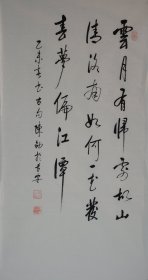 雲月有歸處故山
清洛南如何一花發
春夢徧江潭
乙未春書古句陳於長安